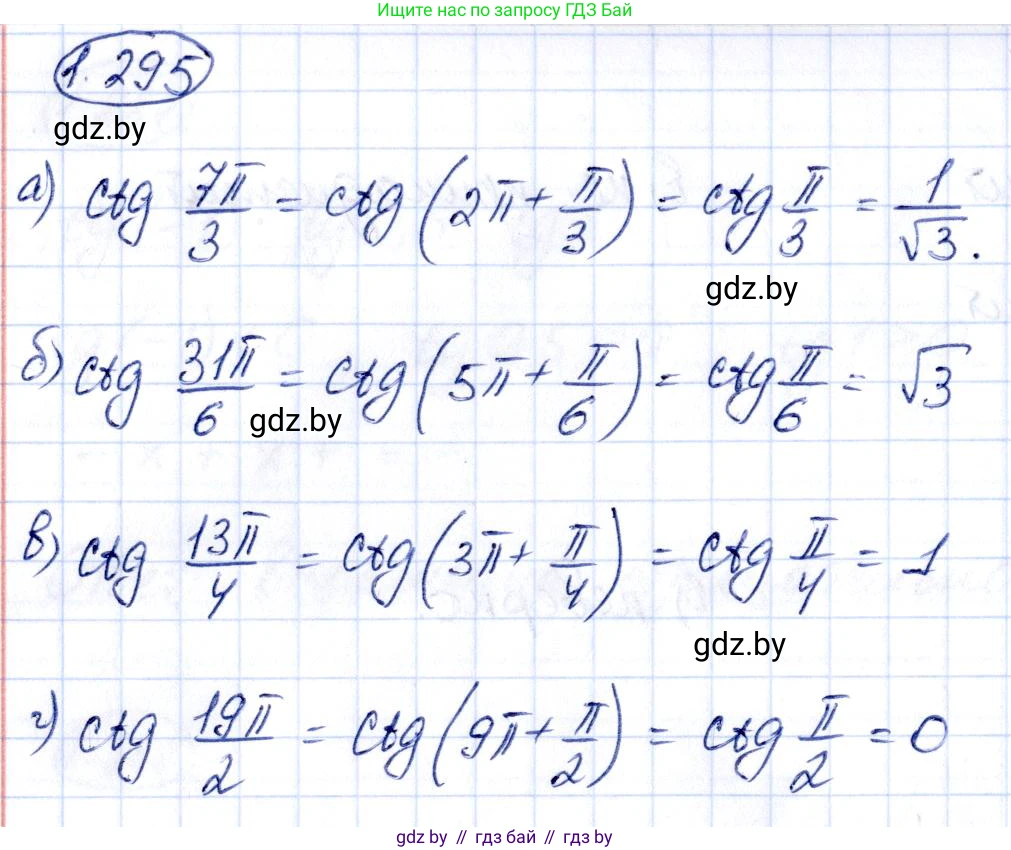 Ищите нас по запросу ГДЗ Бай
1.295
gdz.by
а) ctg 7π/3 = ctg (2π + π/3) = ctg π/3 = 1/√3.
gdz.by
б) ctg 31π/6 = ctg (5π + π/6) = ctg π/6 = √3
gdz.by
в) ctg 13π/4 = ctg (3π + π/4) = ctg π/4 = 1
gdz.by
г) ctg 19π/2 = ctg (9π + π/2) = ctg π/2 = 0
gdz.by // гдз бай // гдз by